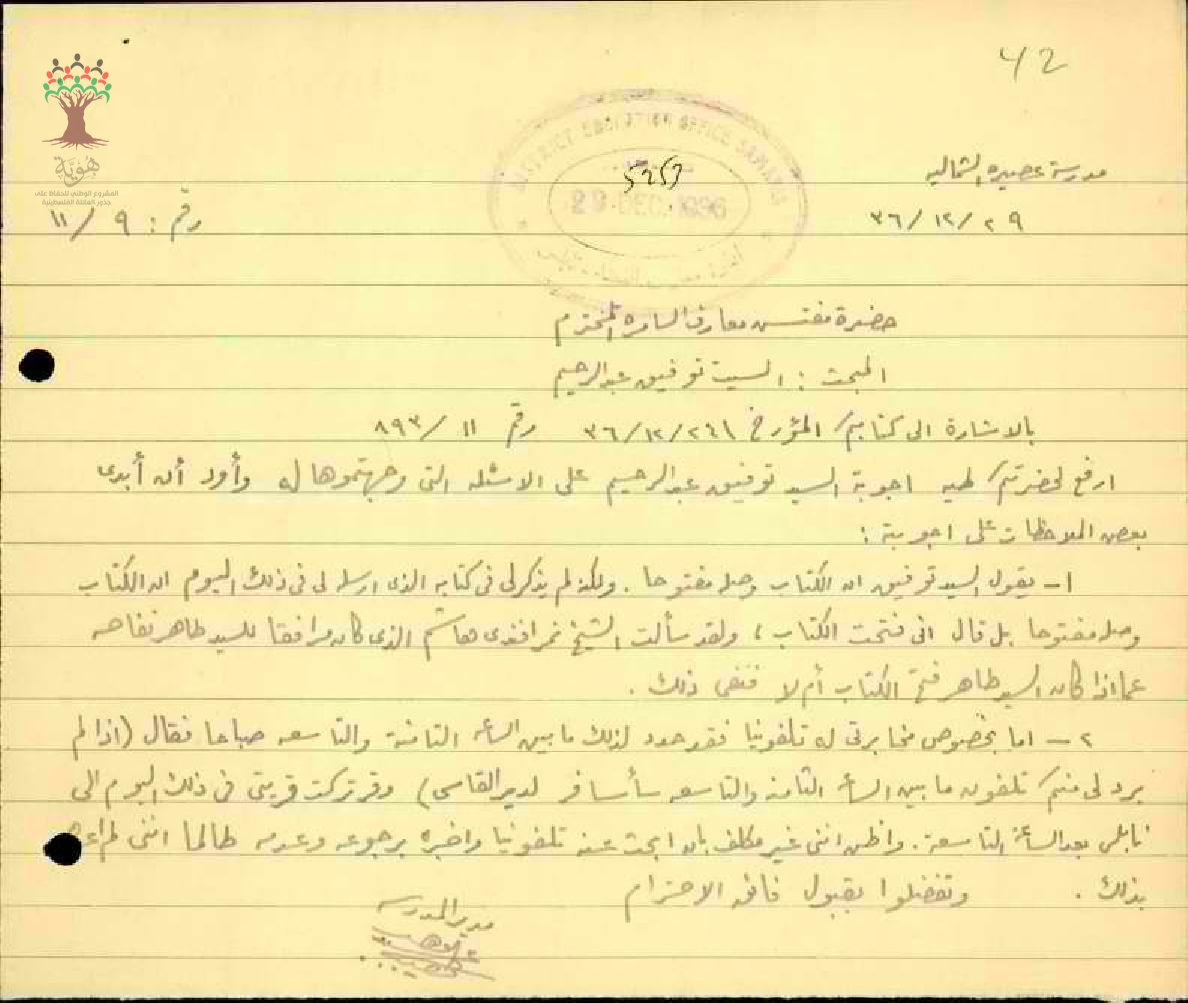 42
هُوِيَّة
المشروع الوطني للحفاظ على
جذور العائلة الفلسطينية
DISTRICT EDUCATION OFFICE SAMARIA
5253
29 DEC 1936
مدرسة عصيره الشماليه
٢٩/١٢/٣٦
رقم : ٩/١١
حضرة مفتش معارف السامره المحترم
المبحث : السيد توفيق عبدالرحيم
بالاشارة الى كتابكم المؤرخ ٣٦/١٢/٢٤ رقم ١١/٨٩٣
ارفع لحضرتكم طيه اجوبة السيد توفيق عبدالرحيم على الاسئله التى وجهتموها له وأود أن أبدى
بعض الملاحظات على اجوبته :
١ـ يقول السيد توفيق ان الكتاب وصله مفتوحا . ولكنه لم يذكر لى فى كتابه الذى ارسله لى فى ذلك اليوم ان الكتاب
وصله مفتوحا بل قال انى فتحت الكتاب ، ولقد سألت الشيخ نمر افندى هاشم الذى كان مرافقا للسيد طاهر تفاحه
عما اذا كان السيد طاهر فتح الكتاب أم لا فنفى ذلك .
٢ـ اما بخصوص مخابرتى له تلفونيا فقد حدد لذلك ما بين الساعة الثامنة والتاسعه صباحا فقال (اذا لم
يرد لى منكم تلفون ما بين الساعة الثامنه والتاسعه سأسافر لدير القاسى) وقد تركت قريتى فى ذلك اليوم الى
نابلس بعد الساعة التاسعة . واظن اننى غير مكلف بان ابحث عنه تلفونيا واخبره برجوعه وعدمه طالما اننى لم
بذلك . وتفضلوا بقبول فائق الاحترام
مدير المدرسه